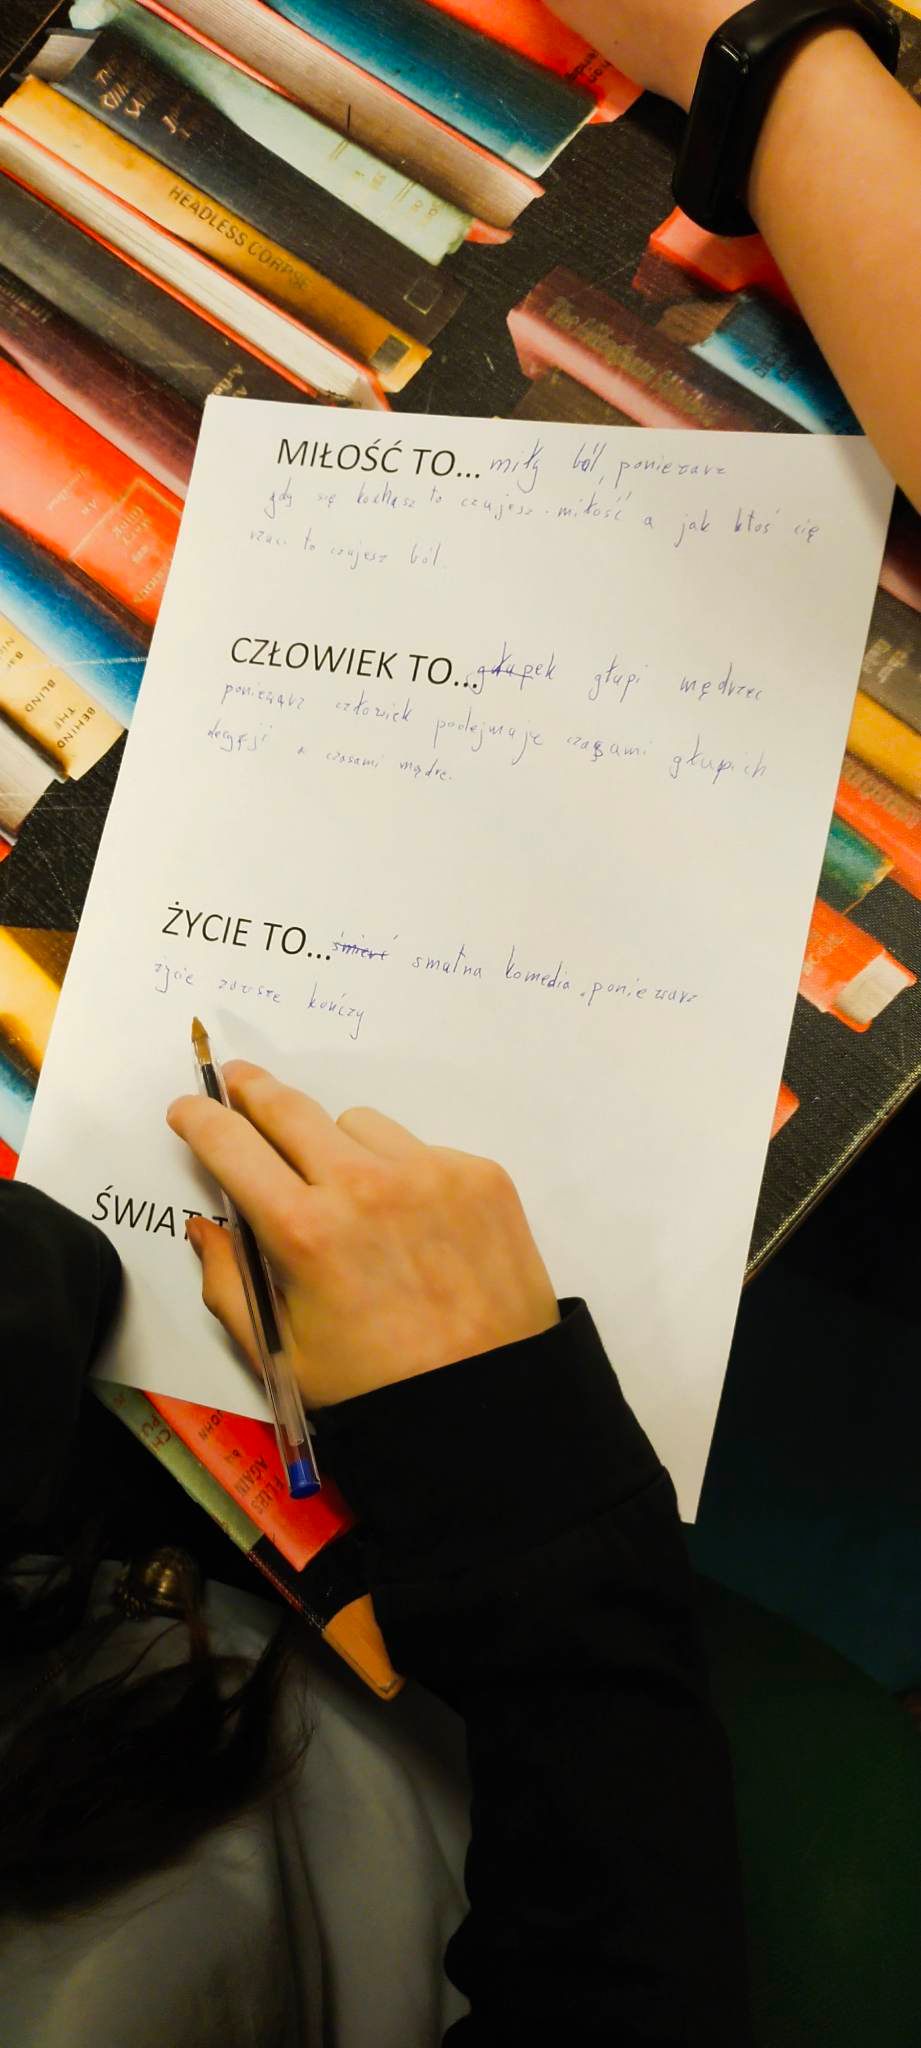 HEADLESS CORPSE
MIŁOŚĆ TO... miły ból, poniewarz
gdy się kochasz to czujesz miłość a jak ktoś cię
rzuci to czujesz ból.
CZŁOWIEK TO... głupek głupi mędrzec
poniewarz człowiek podejmuje czasami głupich
decyzji a czasami mądre.
ŻYCIE TO... śmierć smutna komedia, poniewarz
życie zawsze kończy
ŚWIAT
BEHIND
THE
BLIND
FLIES
AGAIN
JOHN